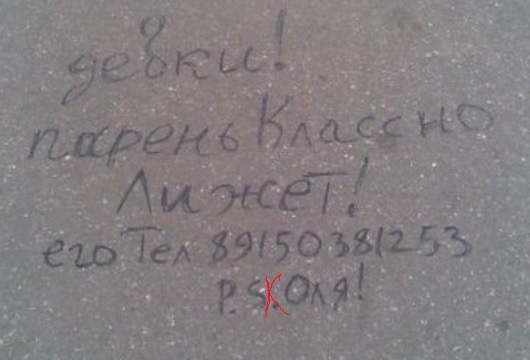 девки!
парень Классно
Лижет!
его Тел 89150381253
P.S. КОля!